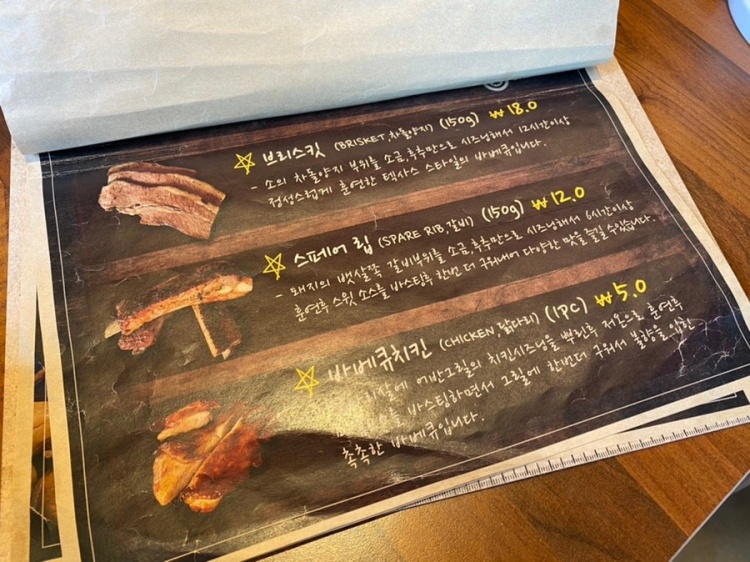 브리스킷 (BRISKET, 차돌양지) (150g) ₩18.0
- 소의 차돌양지 부위를 소금,후추만으로 시즈닝해서 12시간이상
정성스럽게 훈연한 텍사스 스타일의 바베큐입니다.
스페어 립 (SPARE RIB, 갈비) (150g) ₩12.0
- 돼지의 뱃살쪽 갈비부위를 소금,후추만으로 시즈닝해서 6시간이상
훈연후 스윗 소스를 바스팅후 한번 더 구워내어 다양한 맛을 즐길 수있습니다.
바베큐치킨 (CHICKEN, 닭다리) (1PC) ₩5.0
어반그릴의 치킨시즈닝을 뿌린후 저온으로 훈연후
바스팅하면서 그릴에 한번더 구워서 불향을 입힌
촉촉한 바베큐입니다.